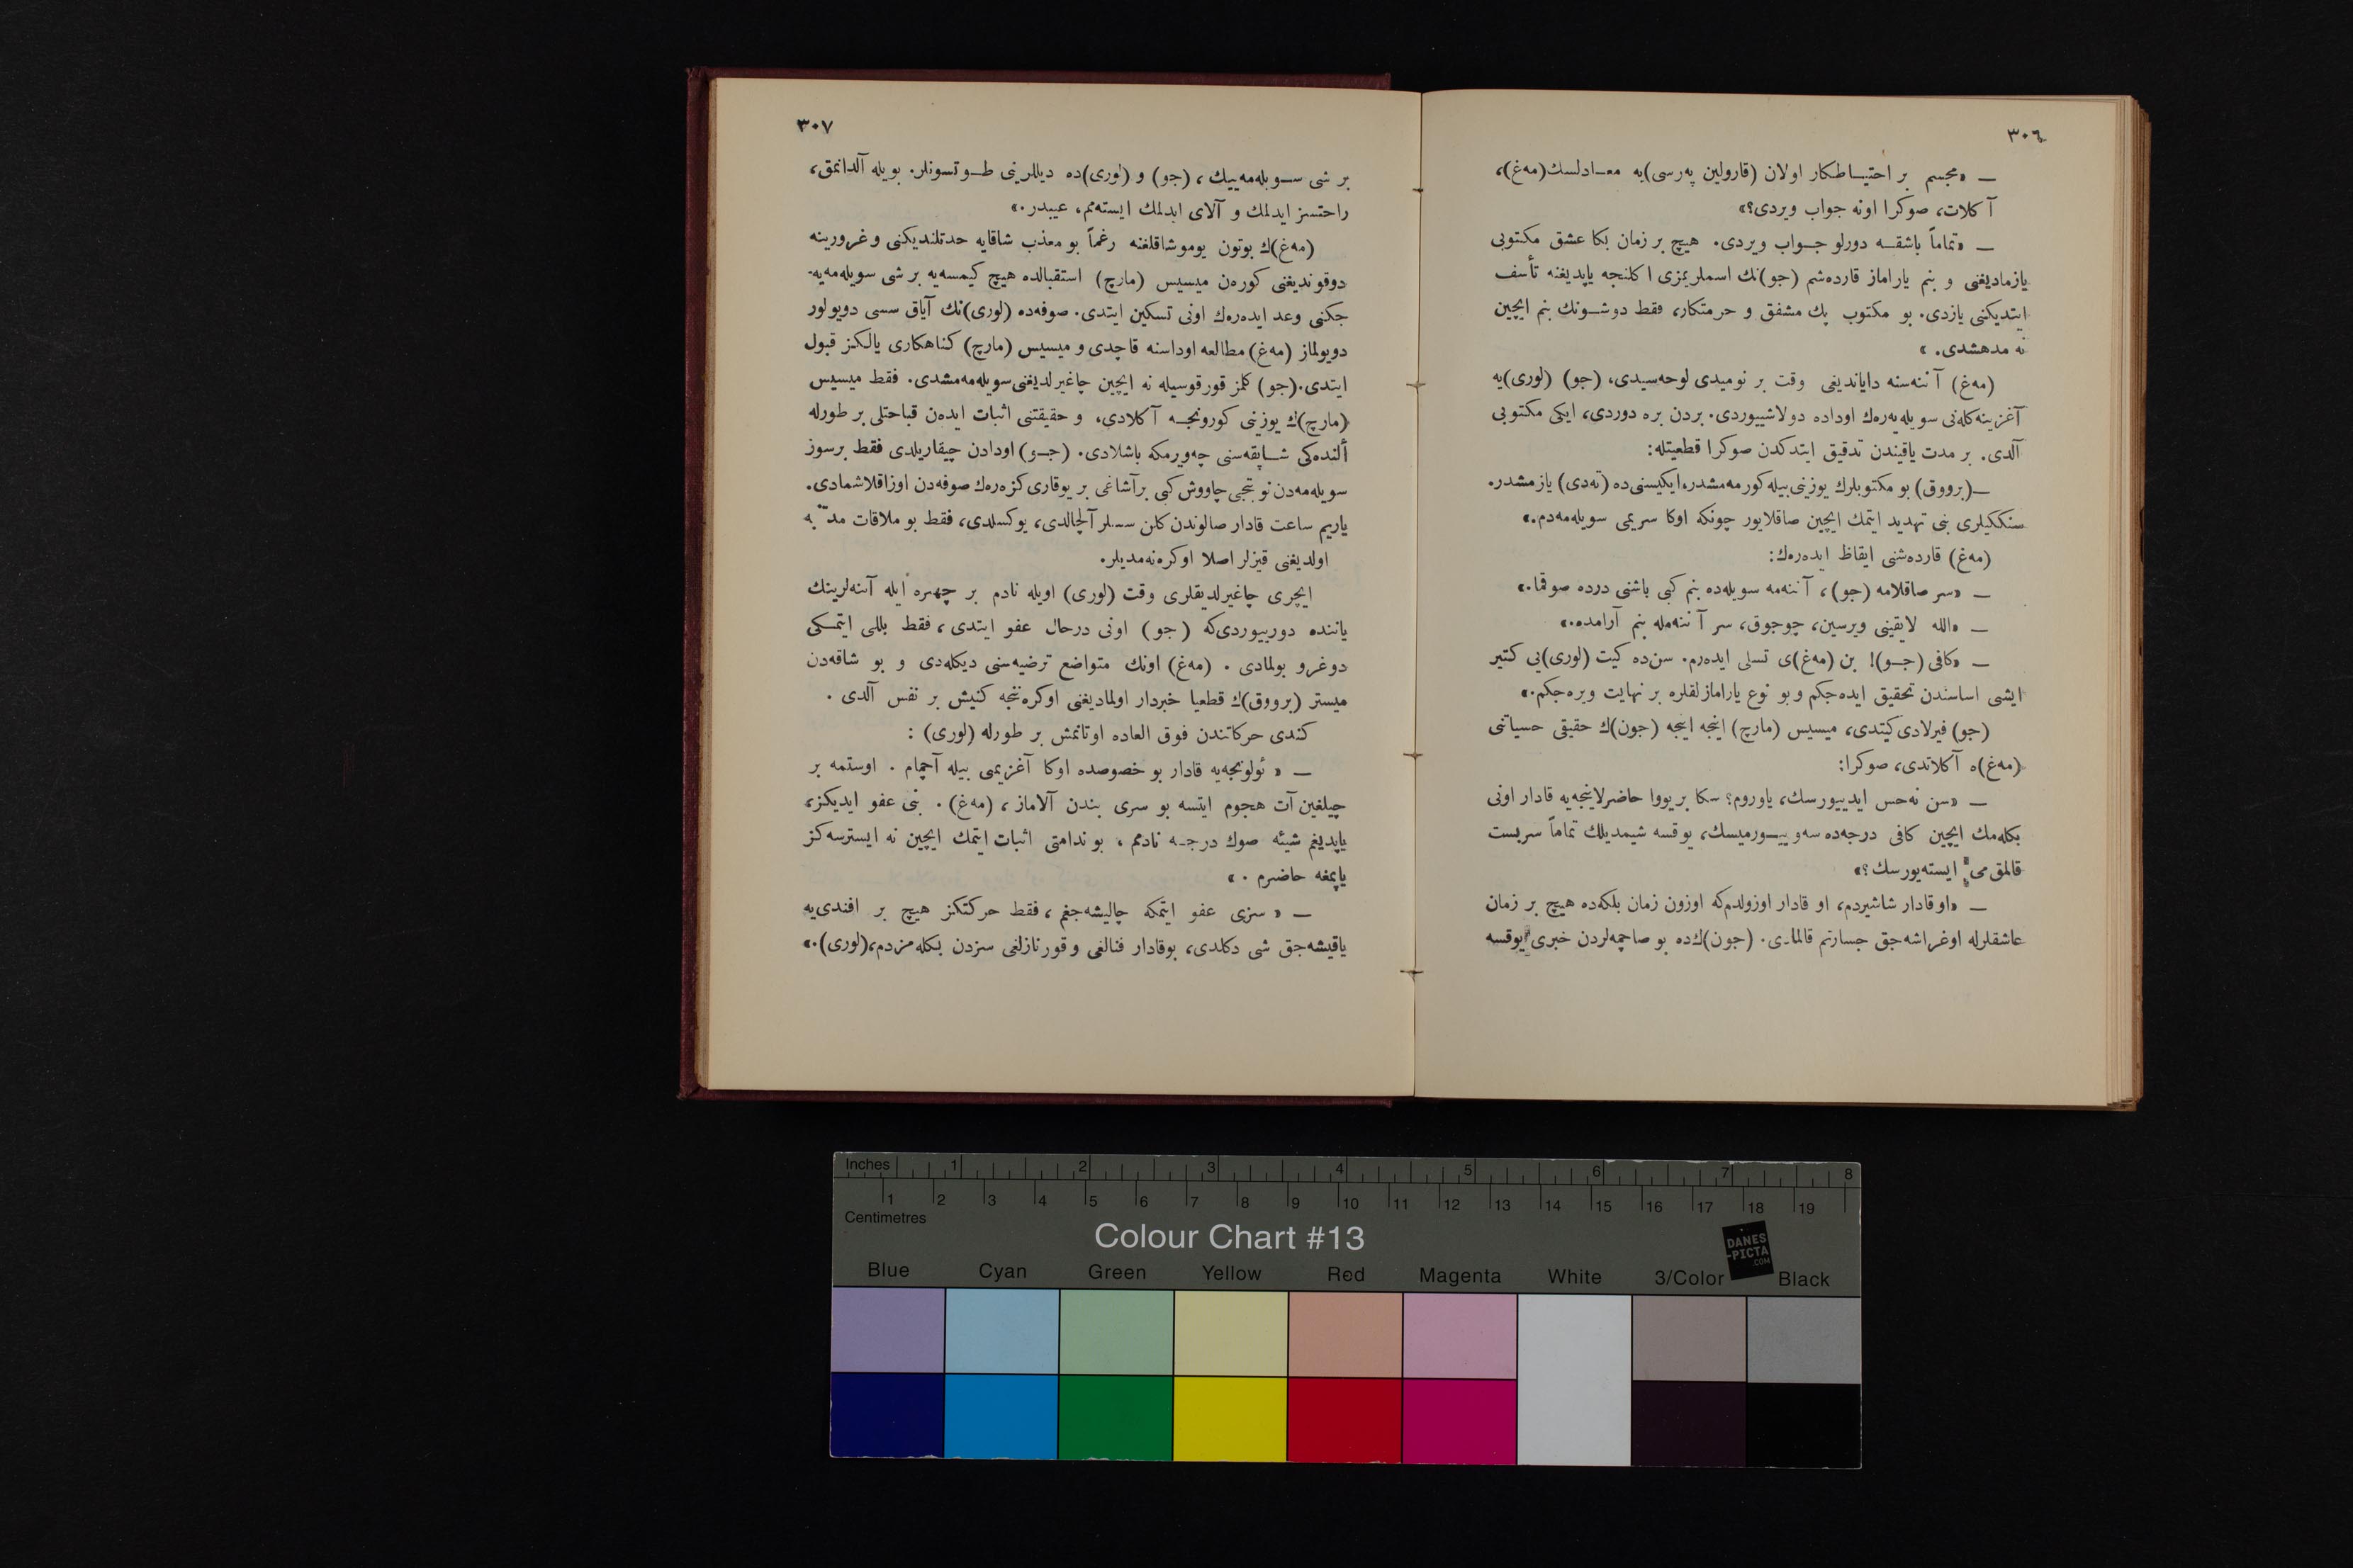 ٣٠٦
— «مجسم بر احتیاطکار اولان (قارولین په‌رسی)یه معادلسك (مه‌غ)،
آ کلات، صوکرا اونه جواب ویردی؟»
— «تماماً باشقه دورلو جواب ویردی. هیچ بر زمان بکا عشق مکتوبی
یازمادیغنی و بنم یاراماز قارده‌شم (جو)نك اسملریمزی اکلنجه یاپدیغنه تأسف
ایتدیکنی یازدی. بو مکتوب پك مشفق و حرمتکار، فقط دوشونك بنم ایچین
نه مدهشدی. »
(مه‌غ) آ ننه‌سنه دایاندیغی وقت بر نومیدی لوحه‌سیدی، (جو) (لوری)یه
آغزینه کله‌نی سویله‌یه‌رەك اوداده دولاشییوردی. بردن بره دوردی، ایکی مکتوبی
آلدی. بر مدت یاقیندن تدقیق ایتدکدن صوکرا قطعیتله:
— (برووق) بو مکتوبلرك یوزینی بیله کورمه‌مشدر، ایکیسنی‌ده (ته‌دی) یازمشدر.
سنککیلری بنی تهدید ایتمك ایچین صاقلایور چونکه اوکا سریمی سویله‌مه‌دم.»
(مه‌غ) قارده‌شنی ایقاظ ایده‌رەك:
— «سر صاقلامه (جو)، آ ننه‌مه سویله‌ده بنم کبی باشنی درده صوقما.»
— «الله لایقینی ویرسین، چوجوق، سر آ ننه‌مله بنم آرامده.»
— «کافی (جو)! بن (مه‌غ)ی تسلی ایده‌رم. سن‌ده کیت (لوری)یی کتیر
ایشی اساسندن تحقیق ایده‌جکم و بو نوع یارامازلقلره بر نهایت ویره‌جکم.»
(جو) فیرلادی کیتدی، میسیس (مارچ) اینجه اینجه (جون)ك حقیقی حسیاتنی
(مه‌غ)ه آ کلاتدی، صوکرا:
— «سن نه‌حس ایدییورسك، یاوروم؟ سکا بر یووا حاضرلاینجه‌یه قادار اونی
بکله‌مك ایچین کافی درجه‌ده سه‌وییورمیسك، یوقسه شیمدیلك تماماً سربست
قالمق می ایسته‌یورسك؟»
— «او قادار شاشیردم، او قادار اوزولدم‌که اوزون زمان بلکه‌ده هیچ بر زمان
عاشقلرله اوغراشه‌جق جسارتم قالمادی. (جون)ك‌ده بو صاچمه‌لردن خبری یوقسه
٣٠٧
بر شی سویله‌مه‌ییك، (جو) و (لوری)ده دیللرینی طوتسونلر. بویله آلدانمق،
راحتسز ایدلمك و آلای ایدلمك ایسته‌مم، عیبدر.»
(مه‌غ)ك بوتون یوموشاقلغنه رغماً بو معذب شاقایه حدتلندیکنی و غرورینه
دوقوندیغنی کوره‌ن میسیس (مارچ) استقبالده هیچ کیمسه‌یه بر شی سویله‌مه‌یه-
جکنی وعد ایده‌رەك اونی تسکین ایتدی. صوفه‌ده (لوری)نك آیاق سسی دویولور
دویولماز (مه‌غ) مطالعه اوداسنه قاچدی و میسیس (مارچ) کناهکاری یالکز قبول
ایتدی. (جو) کلمز قورقوسیله نه ایچین چاغیرلدیغنی سویله‌مه‌مشدی. فقط میسیس
(مارچ)ك یوزینی کورونجه آ کلادی، و حقیقتنی اثبات ایده‌ن قباحتلی بر طورله
ألنده‌کی شاپقه‌سنی چه‌ویرمکه باشلادی. (جو) اودادن چیقاریلدی فقط برسوز
سویله‌مه‌دن نوبتجی چاووش کبی بر آشاغی بر یوقاری کزه‌رەك صوفه‌دن اوزاقلاشمادی.
یاریم ساعت قادار صالوندن کلن سسلر آلچالدی، یوکسلدی، فقط بو ملاقات
اولدیغنی قیزلر اصلا اوکره‌نه‌مدیلر.
ایچری چاغیرلدیقلری وقت (لوری) اویله نادم بر چهره ایله آننه‌لرینك
یاننده دورییوردی‌که (جو) اونی درحال عفو ایتدی، فقط بللی ایتمکی
دوغرو بولمادی. (مه‌غ) اونك متواضع ترضیه‌سنی دیکله‌دی و بو شاقه‌دن
میستر (برووق)ك قطعیا خبردار اولمادیغنی اوکره‌نجه کنیش بر نفس آلدی.
کندی حرکاتندن فوق العاده اوتانمش بر طورله (لوری) :
— « ئولونجه‌یه قادار بو خصوصده اوکا آغزیمی بیله آچمام . اوستمه بر
چیلغین آت هجوم ایتسه بو سری بندن آلاماز، (مه‌غ) . بنی عفو ایدیکز،
یاپدیغم شیئه صوك درجه نادمم، بو ندامتی اثبات ایتمك ایچین نه ایسترسه‌کز
یاپمغه حاضرم . »
— « سزی عفو ایتمکه چالیشه‌جغم، فقط حرکتکز هیچ بر افندی‌یه
یاقیشه‌جق شی دکلدی، بوقادار فنالغی و قورنازلغی سزدن بکله‌مزدم، (لوری).»
Inches 1 2 3 4 5 6 7 8
1 2 3 4 5 6 7 8 9 10 11 12 13 14 15 16 17 18 19
Centimetres
Colour Chart #13
DANES
-PICTA
.COM
Blue Cyan Green Yellow Red Magenta White 3/Color Black